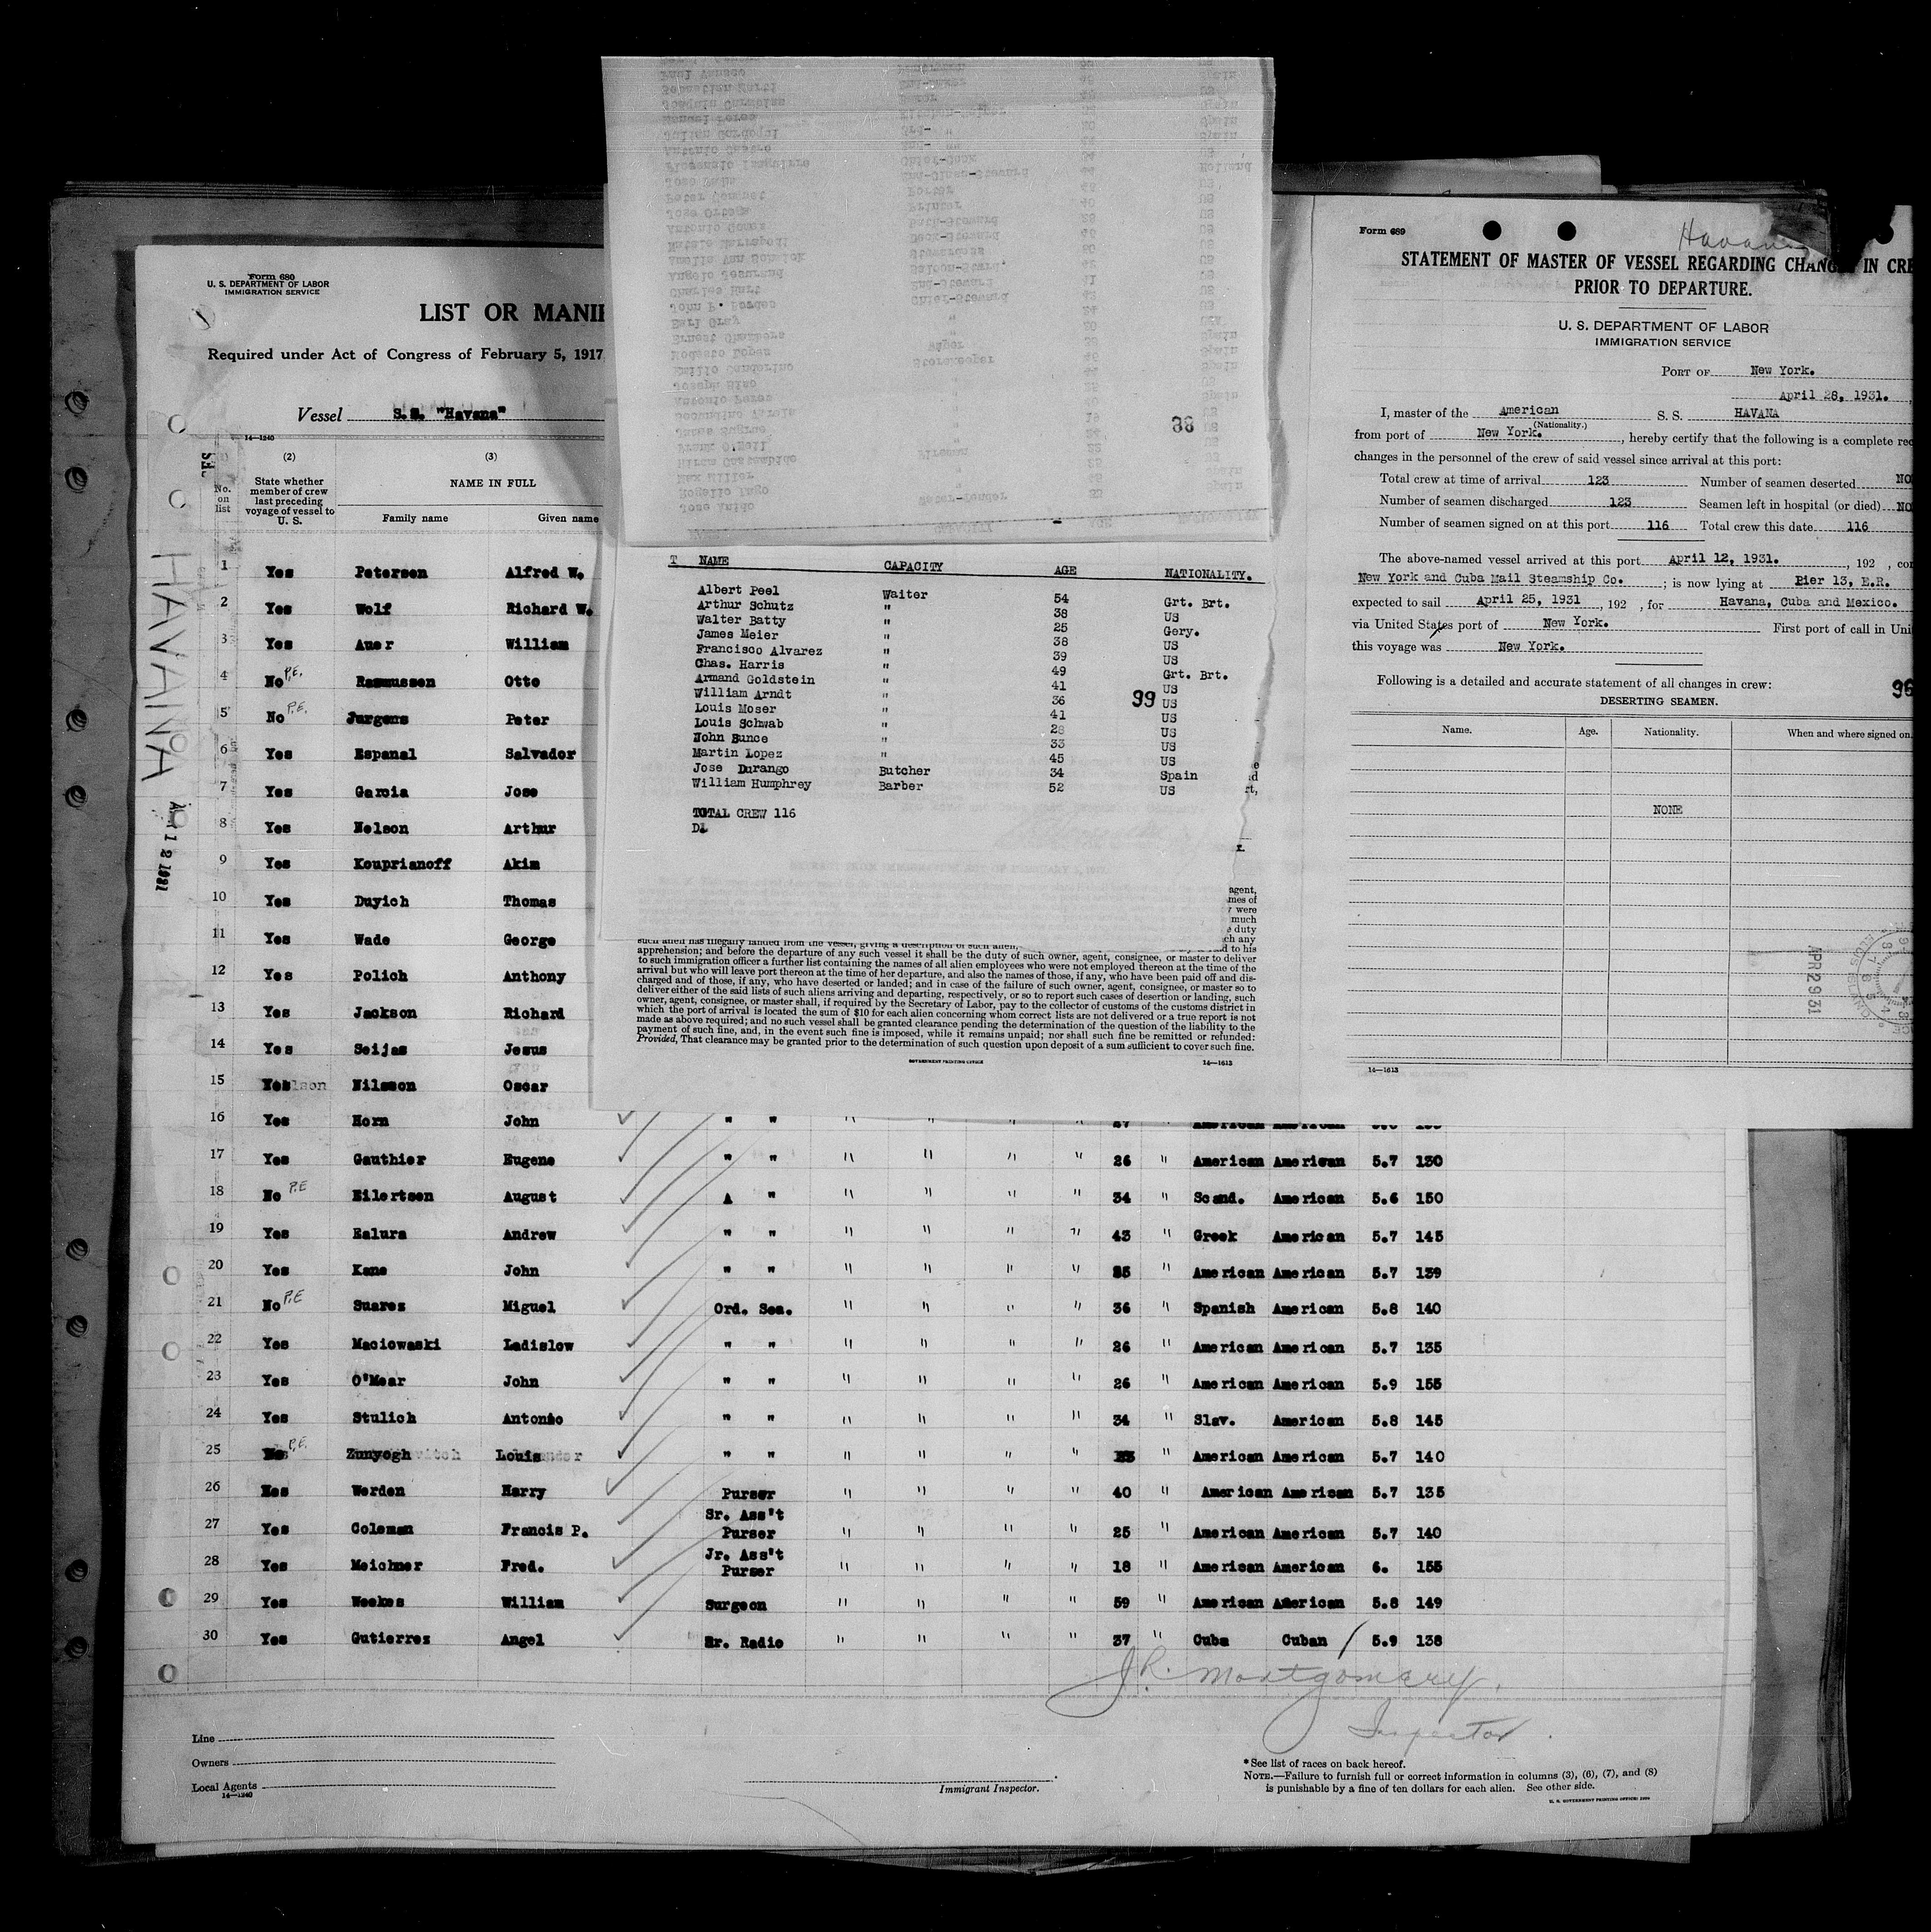 Form 680
U. S. DEPARTMENT OF LABOR
IMMIGRATION SERVICE
LIST OR MANIF
Required under Act of Congress of February 5, 1917
Vessel S.S. "Havana"
14—1240
(2) (3)
No. on list
State whether member of crew last preceding voyage of vessel to U. S.
NAME IN FULL
Family name Given name
HAVANA
1 Yes Petersen Alfred W.
2 Yes Wolf Richard W.
3 Yes Auer William
4 No P.E. Rasmussen Otto
5 No P.E. Jurgens Peter
6 Yes Espanal Salvador
7 Yes Garcia Jose
8 Yes Nelson Arthur
9 Yes Kouprianoff Akim
10 Yes Duyich Thomas
11 Yes Wade George
12 Yes Polich Anthony
13 Yes Jackson Richard
14 Yes Seijas Jesus
15 Yes Nilsson Oscar
16 Yes Horn John " " " " " "
17 Yes Gauthier Eugene " " " " " " 26 " American American 5.7 130
18 No P.E Eilertsen August A " " " " " 34 " Scand. American 5.6 150
19 Yes Ealura Andrew " " " " " " 43 " Greek American 5.7 145
20 Yes Kane John " " " " " " 25 " American American 5.7 139
21 No P.E Suarez Miguel Ord. Sea. " " " " 36 " Spanish American 5.8 140
22 Yes Maciowaski Ladislow " " " " " " 26 " American American 5.7 135
23 Yes O'Mear John " " " " " " 26 " American American 5.9 155
24 Yes Stulich Antonio " " " " " " 34 " Slav. American 5.8 145
25 No P.E. Zunyogh Louis " " " " " " " American American 5.7 140
26 Yes Werden Harry Purser " " " " 40 " American American 5.7 135
27 Yes Coleman Francis P. Sr. Ass't Purser " " " " 25 " American American 5.7 140
28 Yes Meichner Fred. Jr. Ass't Purser " " " " 18 " American American 6. 155
29 Yes Weekes William Surgeon " " " " 59 " American American 5.8 149
30 Yes Gutierrez Angel Sr. Radio " " " " 37 " Cuba Cuban 5.9 138
J.R. Montgomery.
Inspector.
Line
Owners
Local Agents
14—1240
Immigrant Inspector.
* See list of races on back hereof.
NOTE.—Failure to furnish full or correct information in columns (3), (6), (7), and (8)
is punishable by a fine of ten dollars for each alien. See other side.
U. S. GOVERNMENT PRINTING OFFICE
38
T NAME CAPACITY AGE NATIONALITY.
Albert Peel Waiter 54 Grt. Brt.
Arthur Schutz " 38 US
Walter Batty " 25 Gery.
James Meier " 38 US
Francisco Alvarez " 39 US
Chas. Harris " 49 Grt. Brt.
Armand Goldstein " 41 US
William Arndt " 36 99 US
Louis Moser " 41 US
Louis Schwab " 28 US
John Bunce " 33 US
Martin Lopez " 45 US
Jose Durango Butcher 34 Spain
William Humphrey Barber 52 US
TOTAL CREW 116
DL
agent,
mes of
were
much
duty
ch any
such alien has illegally landed from the vessel, giving a description of such alien, d to his
apprehension; and before the departure of any such vessel it shall be the duty of such owner, agent, consignee, or master to deliver
to such immigration officer a further list containing the names of all alien employees who were not employed thereon at the time of the
arrival but who will leave port thereon at the time of her departure, and also the names of those, if any, who have been paid off and dis-
charged and of those, if any, who have deserted or landed; and in case of the failure of such owner, agent, consignee, or master so to
deliver either of the said lists of such aliens arriving and departing, respectively, or so to report such cases of desertion or landing, such
owner, agent, consignee, or master shall, if required by the Secretary of Labor, pay to the collector of customs of the customs district in
which the port of arrival is located the sum of $10 for each alien concerning whom correct lists are not delivered or a true report is not
made as above required; and no such vessel shall be granted clearance pending the determination of the question of the liability to the
payment of such fine, and, in the event such fine is imposed, while it remains unpaid; nor shall such fine be remitted or refunded:
Provided, That clearance may be granted prior to the determination of such question upon deposit of a sum sufficient to cover such fine.
GOVERNMENT PRINTING OFFICE 14—1613
Form 689
Havana
STATEMENT OF MASTER OF VESSEL REGARDING CHANG IN CRE
PRIOR TO DEPARTURE.
U. S. DEPARTMENT OF LABOR
IMMIGRATION SERVICE
PORT OF New York.
April 28, 1931.
I, master of the American S. S. HAVANA
(Nationality.)
from port of New York. , hereby certify that the following is a complete rec
changes in the personnel of the crew of said vessel since arrival at this port:
Total crew at time of arrival 123 Number of seamen deserted NO
Number of seamen discharged 123 Seamen left in hospital (or died) NO
Number of seamen signed on at this port 116 Total crew this date 116
The above-named vessel arrived at this port April 12, 1931. , 192 , con
New York and Cuba Mail Steamship Co. ; is now lying at Pier 13, E.R.
expected to sail April 25, 1931 , 192 , for Havana, Cuba and Mexico.
via United States port of New York. First port of call in Uni
this voyage was New York.
Following is a detailed and accurate statement of all changes in crew: 96
DESERTING SEAMEN.
Name. Age. Nationality. When and where signed on.
NONE
APR 29 31
14—1613